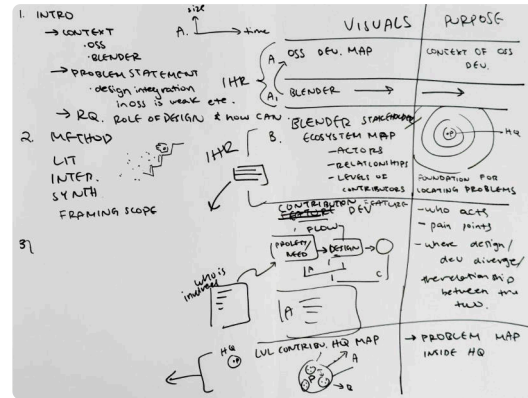 1. INTRO
→ CONTEXT
· OSS
· BLENDER
→ PROBLEM STATEMENT
· design integration
in OSS is weak etc.
→ RQ. ROLE OF DESIGN & HOW CAN
2. METHOD
LIT
INTER.
SYNTH
FRAMING SCOPE
3)
size
A.
→ time
VISUALS
PURPOSE
1HR
A. OSS DEV. MAP
CONTEXT OF OSS
DEV.
A, BLENDER →
→
1HR
B. BLENDER STAKEHOLDER
ECOSYSTEM MAP
- ACTORS
- RELATIONSHIPS
- LEVELS OF
CONTRIBUTORS
HQ
FOUNDATION FOR
LOCATING PROBLEMS
CONTRIBUTION FEATURE
FEATURE DEV
FLOW
NEED
→ DESIGN →
A
C
who is
involved
A
- who acts
- pain points
- where design/
dev diverge/
the relationship
between the
two.
HQ
LVL CONTRIBU. HQ MAP
A
B
→ PROBLEM MAP
INSIDE HQ